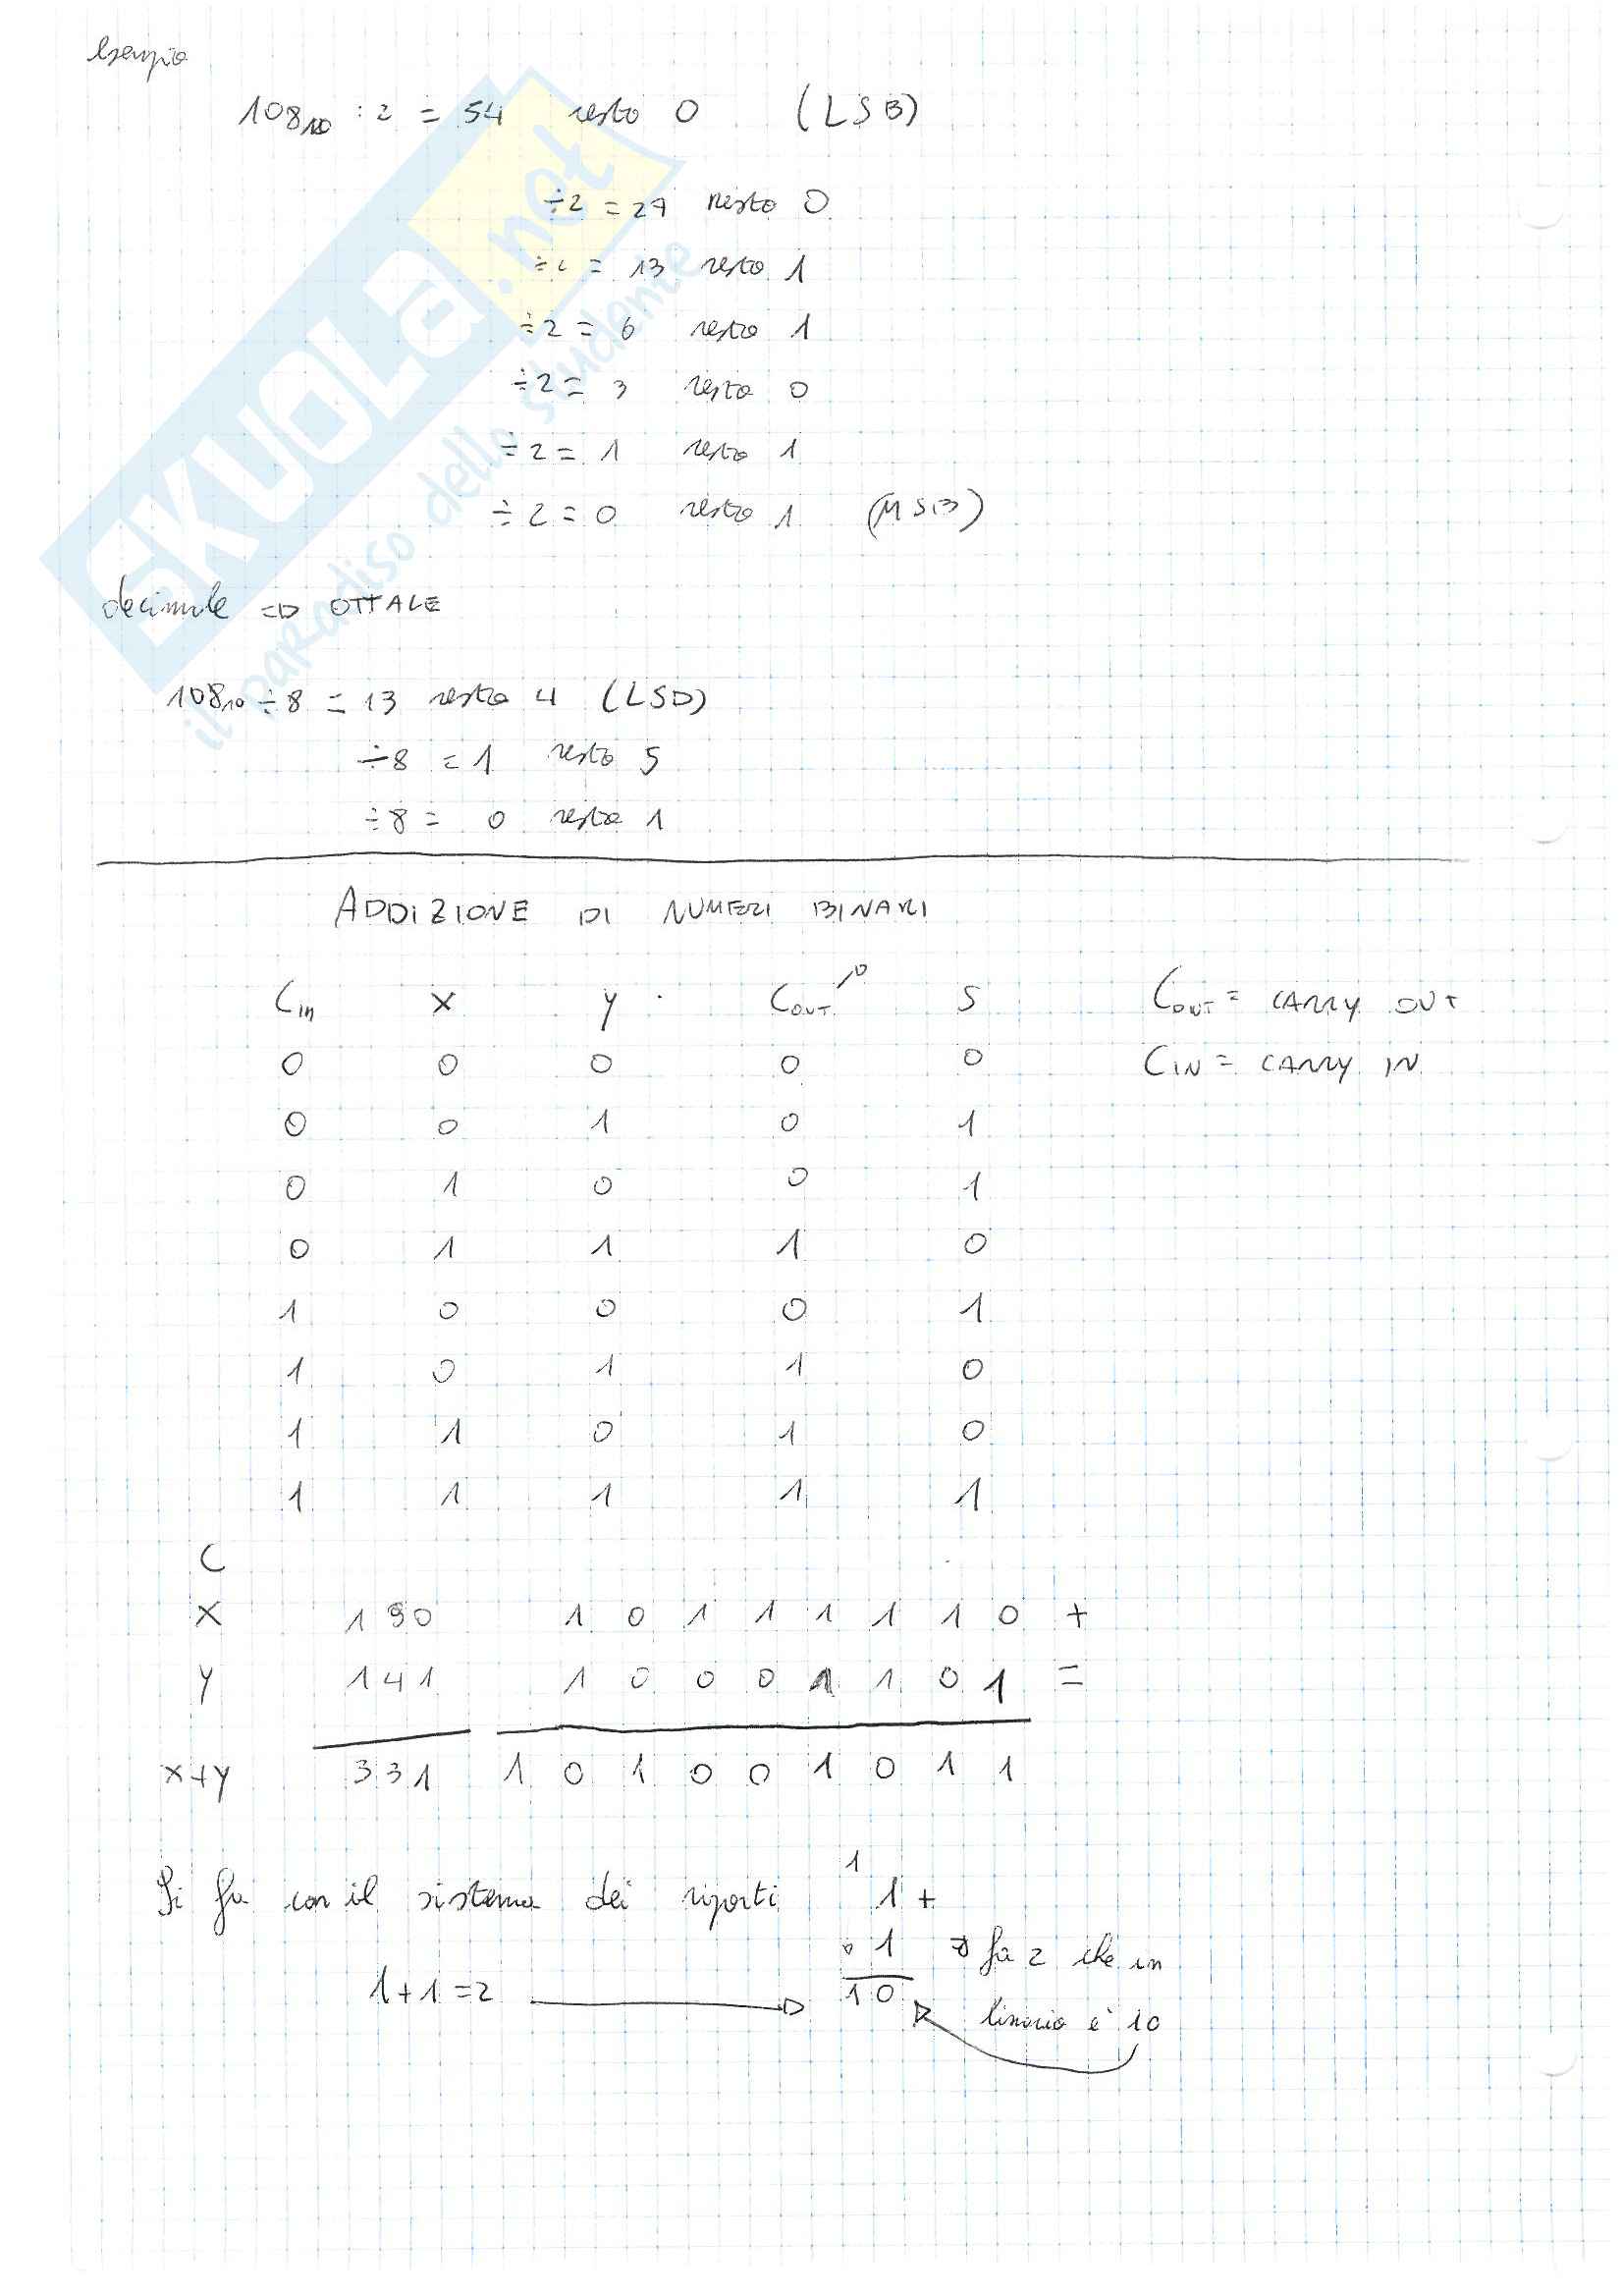 Esempio
108₁₀ : 2 = 54 resto 0 (LSB)
÷2 = 27 resto 0
÷2 = 13 resto 1
÷2 = 6 resto 1
÷2 = 3 resto 0
÷2 = 1 resto 1
÷2 = 0 resto 1 (MSB)
decimale => OTTALE
108₁₀ ÷ 8 = 13 resto 4 (LSD)
÷8 = 1 resto 5
÷8 = 0 resto 1
SKUOLA.net
il paradiso dello studente
ADDIZIONE DI NUMERI BINARI
Cin X Y COUT S COUT = CARRY OUT
0 0 0 0 0 CIN = CARRY IN
0 0 1 0 1
0 1 0 0 1
0 1 1 1 0
1 0 0 0 1
1 0 1 1 0
1 1 0 1 0
1 1 1 1 1
C
X 190 1 0 1 1 1 1 1 0 +
Y 141 1 0 0 0 1 1 0 1 =
X+Y 331 1 0 1 0 0 1 0 1 1
1
Si fa con il sistema dei riporti 1 +
0 1 => fa 2 che in
1+1=2 → 1 0
binario è 10